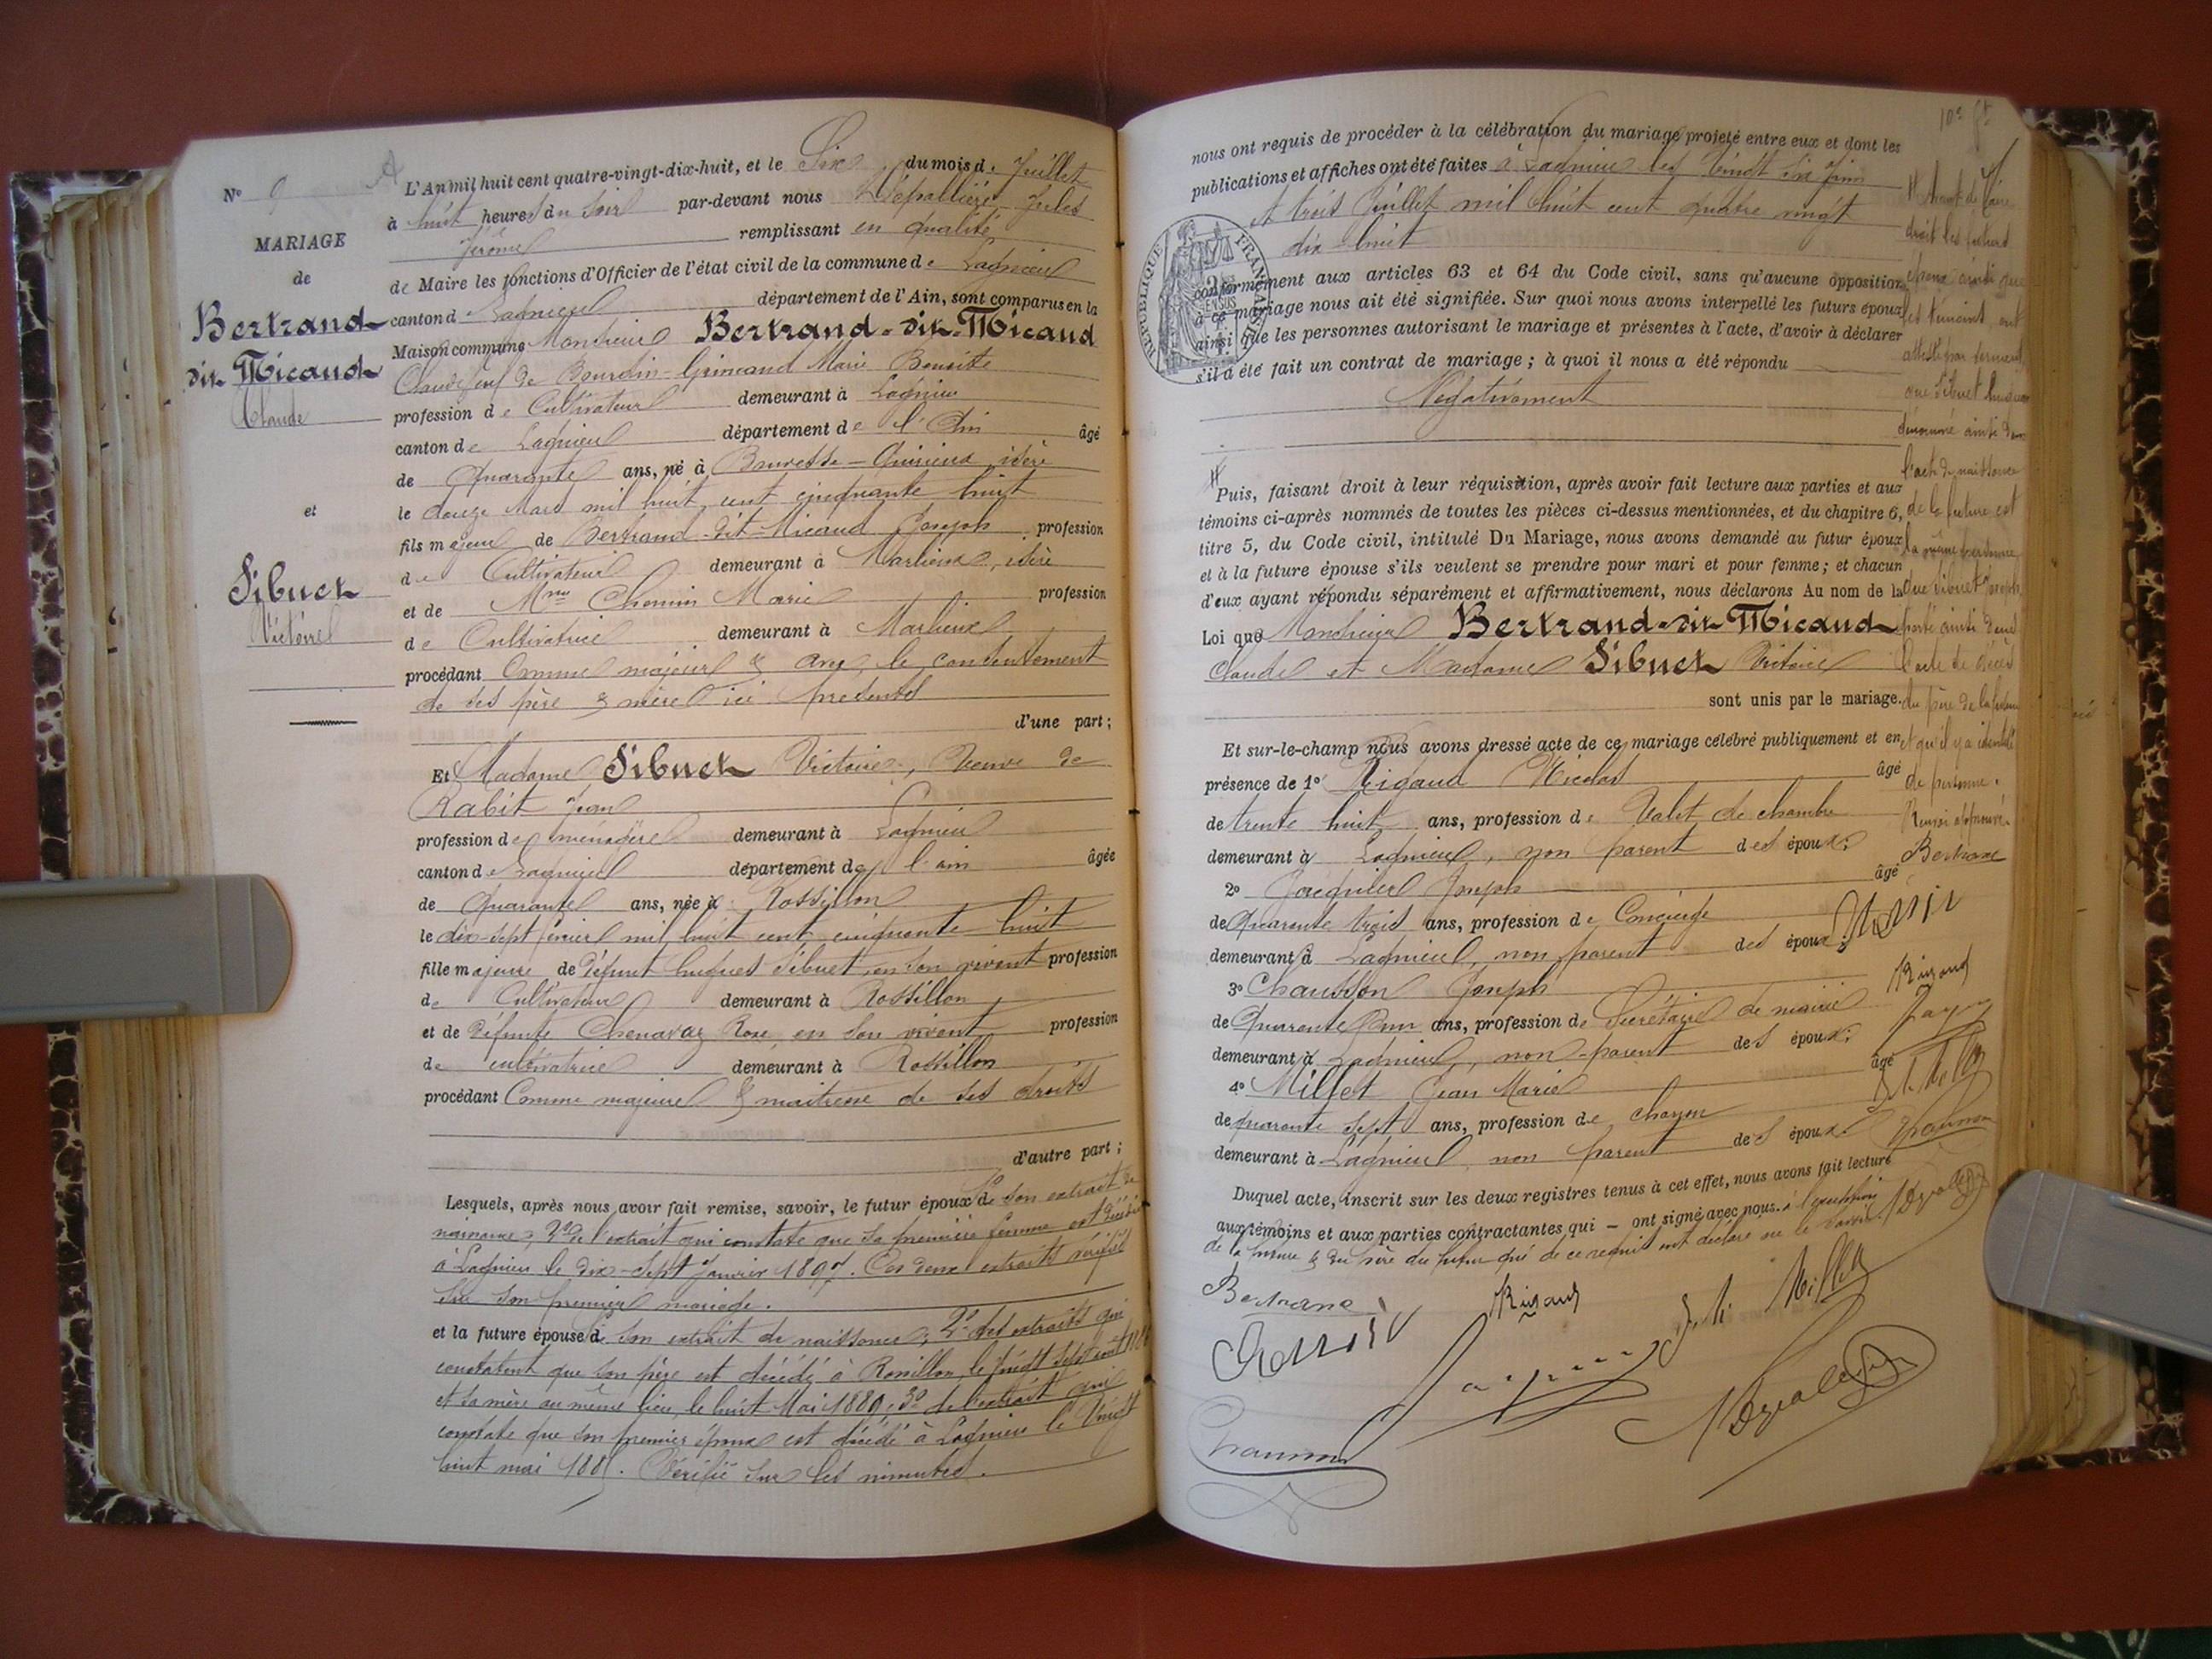 N° 9
MARIAGE
de
Bertrand
dit Micaud
Claude
et
Sibuet
Victoire
L'An mil huit cent quatre-vingt-dix-huit, et le Six du mois de Juillet
à huit heures du soir par-devant nous Jules
Jérôme remplissant en qualité
de Maire les fonctions d'Officier de l'état civil de la commune de Lagnieu
canton de Lagnieu département de l'Ain, sont comparus en la
Maison commune Monsieur Bertrand-dit-Micaud
Claude, veuf de Bourdin-Grimaud Marie Benoite
profession de Cultivateur demeurant à Lagnieu
canton de Lagnieu département de l'Ain âgé
de Quarante ans, né à Bouvesse-Quirieu, isère
le douze Mars mil huit cent cinquante huit
fils majeur de Bertrand-dit-Micaud Joseph profession
de Cultivateur demeurant à Marlieux, isère
et de Mme Chemin Marie profession
de Cultivatrice demeurant à Marlieux
procédant Comme majeur & avec le consentement
de ses père & mère ici présents
d'une part;
Et Madame Sibuet Victoire, Veuve de
Rabit Jean
profession de ménagère demeurant à Lagnieu
canton de Lagnieu département de l'ain âgée
de Quarante ans, née à Rossillon
le dix-sept février mil huit cent cinquante huit
fille majeure de Défunt hugues Sibuet, en son vivant profession
de Cultivateur demeurant à Rossillon
et de Défunte Chenavaz Rose, en son vivant profession
de cultivatrice demeurant à Rossillon
procédant Comme majeure & maitresse de ses droits
d'autre part;
Lesquels, après nous avoir fait remise, savoir, le futur époux de 1° son extrait de
naissance; 2° de l'extrait qui constate que sa première femme est décédée
à Lagnieu le dix-sept Janvier 189. Ces deux extraits vérifiés
sur son premier mariage.
et la future épouse de 1° son extrait de naissance; 2° des extraits qui
constatent que son père est décédé à Rossillon, le vingt sept août
et sa mère au même lieu, le huit Mai 1889; 3° de l'extrait qui
constate que son premier époux est décédé à Lagnieu le Vingt
huit mai 188. Vérifié sur les minutes.
nous ont requis de procéder à la célébration du mariage projeté entre eux et dont les
publications et affiches ont été faites à Lagnieu les Vingt six Juin
et trois Juillet mil huit cent quatre vingt
dix huit
RÉPUBLIQUE FRANÇAISE
conformément aux articles 63 et 64 du Code civil, sans qu'aucune opposition
à ce mariage nous ait été signifiée. Sur quoi nous avons interpellé les futurs époux
ainsi que les personnes autorisant le mariage et présentes à l'acte, d'avoir à déclarer
s'il a été fait un contrat de mariage; à quoi il nous a été répondu
Négativement
Puis, faisant droit à leur réquisition, après avoir fait lecture aux parties et aux
témoins ci-après nommés de toutes les pièces ci-dessus mentionnées, et du chapitre 6,
titre 5, du Code civil, intitulé Du Mariage, nous avons demandé au futur époux
et à la future épouse s'ils veulent se prendre pour mari et pour femme; et chacun
d'eux ayant répondu séparément et affirmativement, nous déclarons Au nom de la
Loi que Monsieur Bertrand-dit-Micaud
Claude et Madame Sibuet Victoire
sont unis par le mariage.
Et sur-le-champ nous avons dressé acte de ce mariage célébré publiquement et en
présence de 1° Rigaud Nicolas âgé
de trente huit ans, profession de Valet de chambre
demeurant à Lagnieu, non parent des époux;
2° Jacquier Joseph âgé
de Quarante trois ans, profession de Concierge
demeurant à Lagnieu, non parent des époux;
3° Chausson Joseph
de Quarante un ans, profession de Secrétaire de mairie
demeurant à Lagnieu, non-parent des époux;
4° Millet Jean Marie âgé
de quarante sept ans, profession de charron
demeurant à Lagnieu, non parent des époux.
Duquel acte, inscrit sur les deux registres tenus à cet effet, nous avons fait lecture
aux témoins et aux parties contractantes qui - ont signé avec nous à l'exception
de la mère & du père du futur qui de ce requis ont déclaré ne le savoir.
Avant de faire
droit les futurs
époux ainsi que
les témoins, ont
attesté par serment
que Sibuet hugues
dénommé ainsi dans
l'acte de naissance
de la future est
la même personne
que Sibuet Joseph
porté ainsi dans
l'acte de décès
du père de la future
et qu'il y a identité
de personne.
Renvoi approuvé.
Bertrand
Rigaud
Bertrand
Rigaud
J. M. Millet